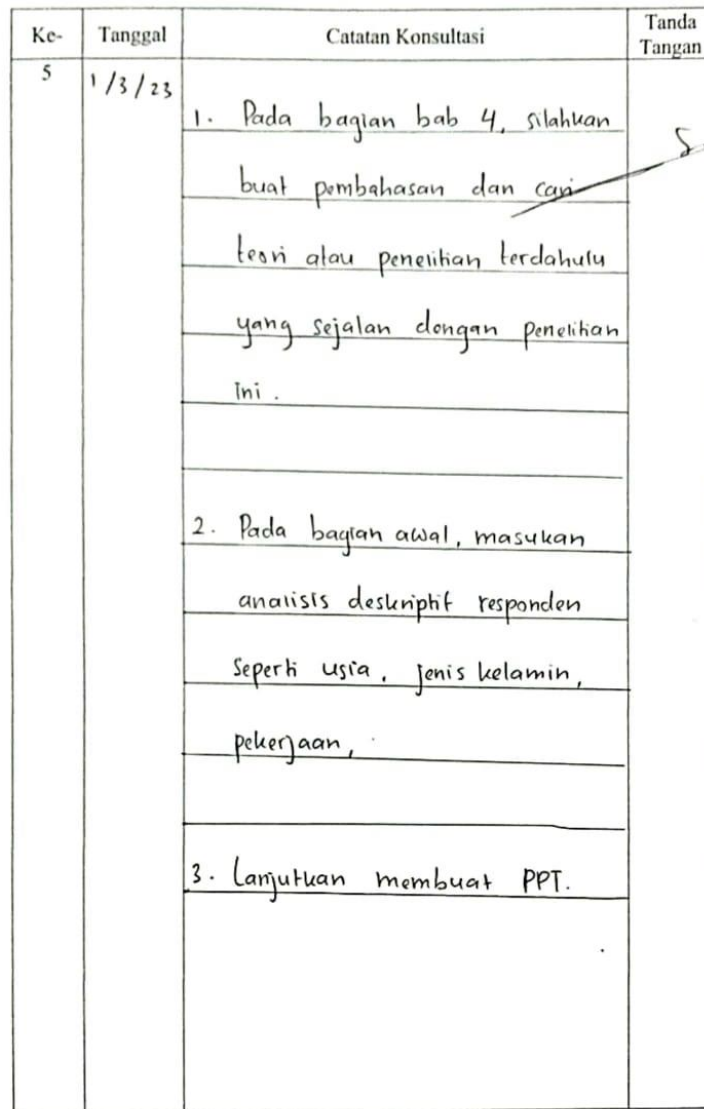 Ke- Tanggal Catatan Konsultasi Tanda Tangan
5 1/3/23
1. Pada bagian bab 4, silahkan
buat pembahasan dan cari
teori atau penelitian terdahulu
yang sejalan dengan penelitian
ini.
2. Pada bagian awal, masukan
analisis deskriptif responden
seperti usia, jenis kelamin,
pekerjaan,
3. Lanjutkan membuat PPT.